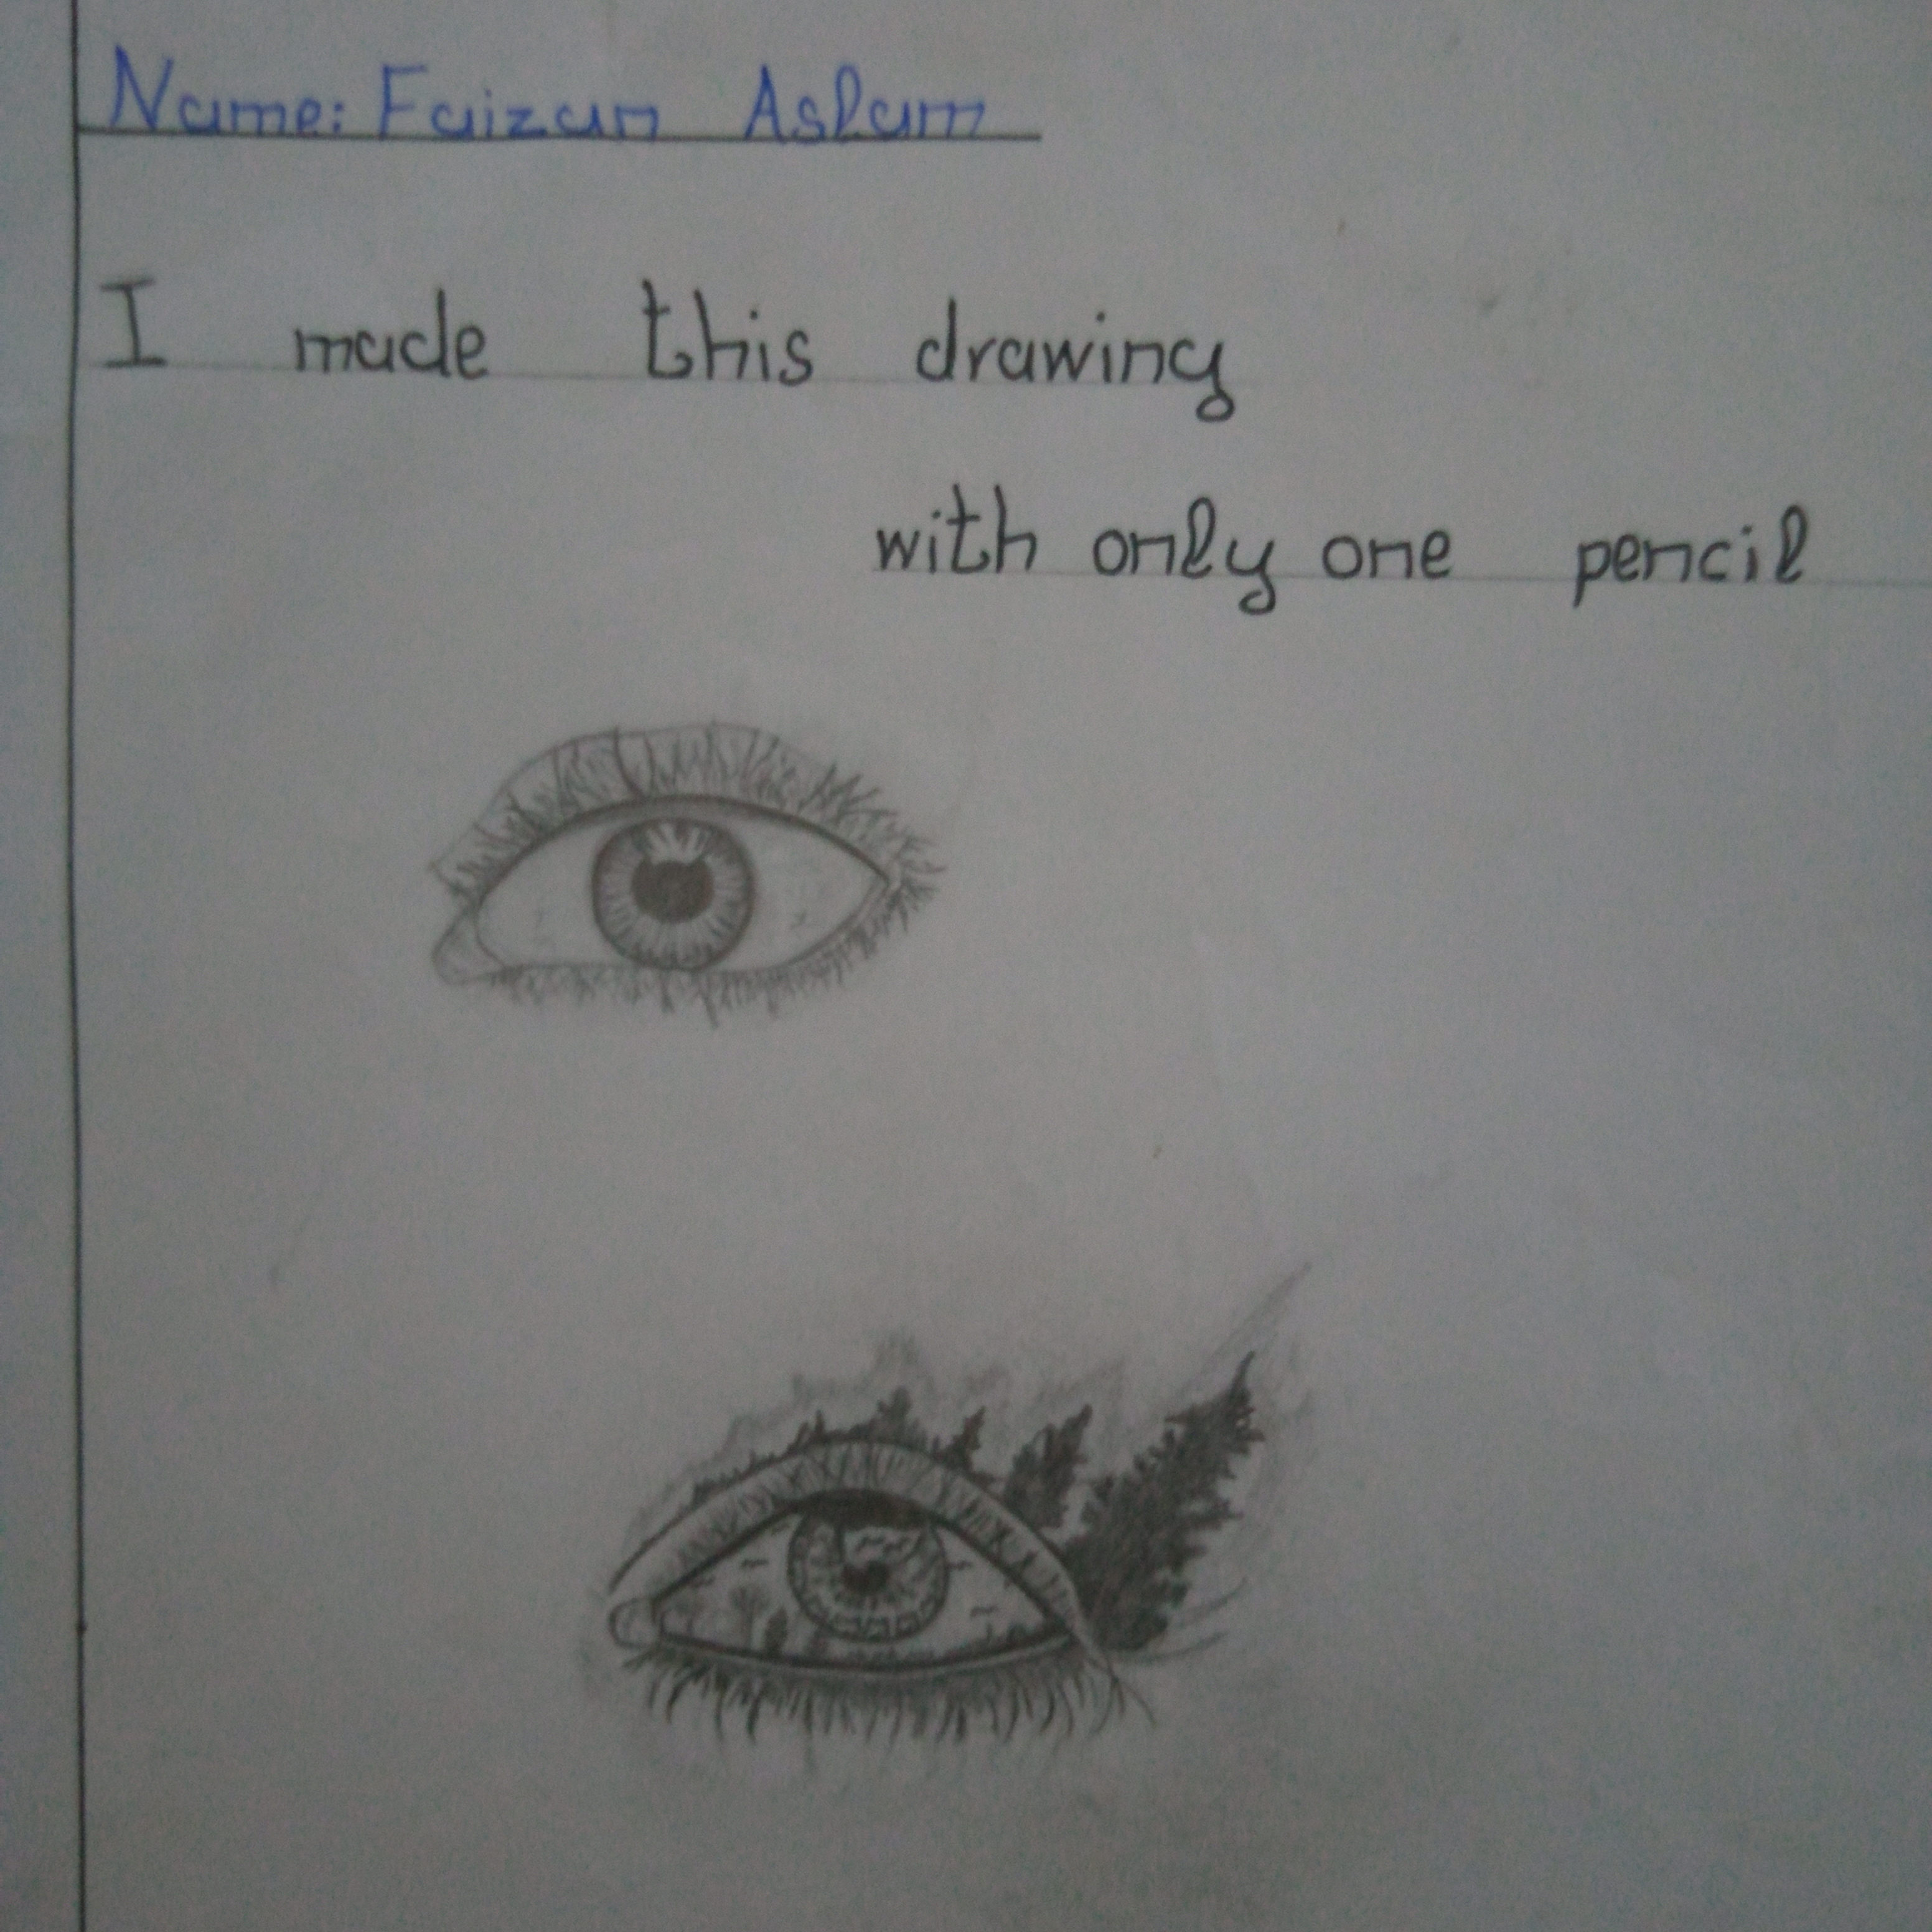 Name: Faizan Aslam
I made this drawing
with only one pencil